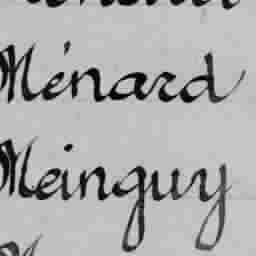 Ménard
Meinguy